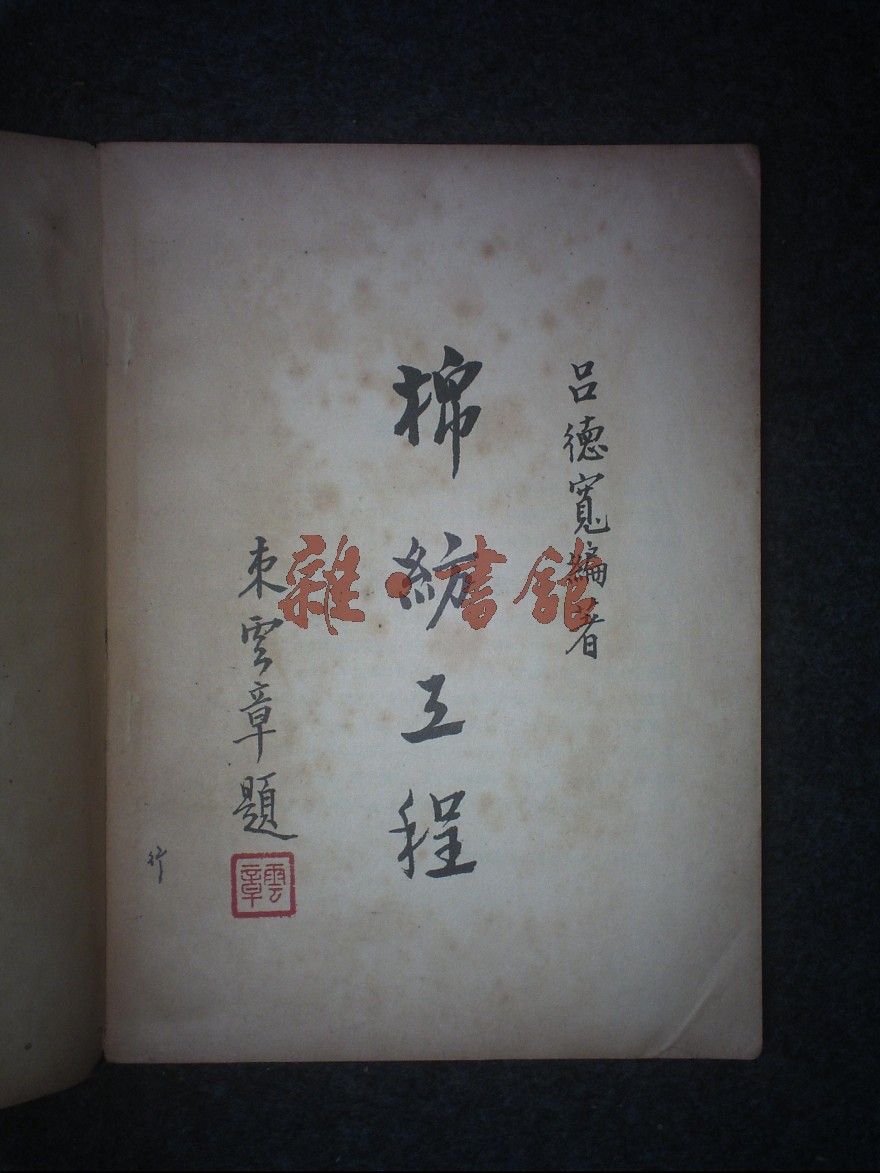 呂德寬編著
棉紡工程
束雲章題
雲章
雜·書館